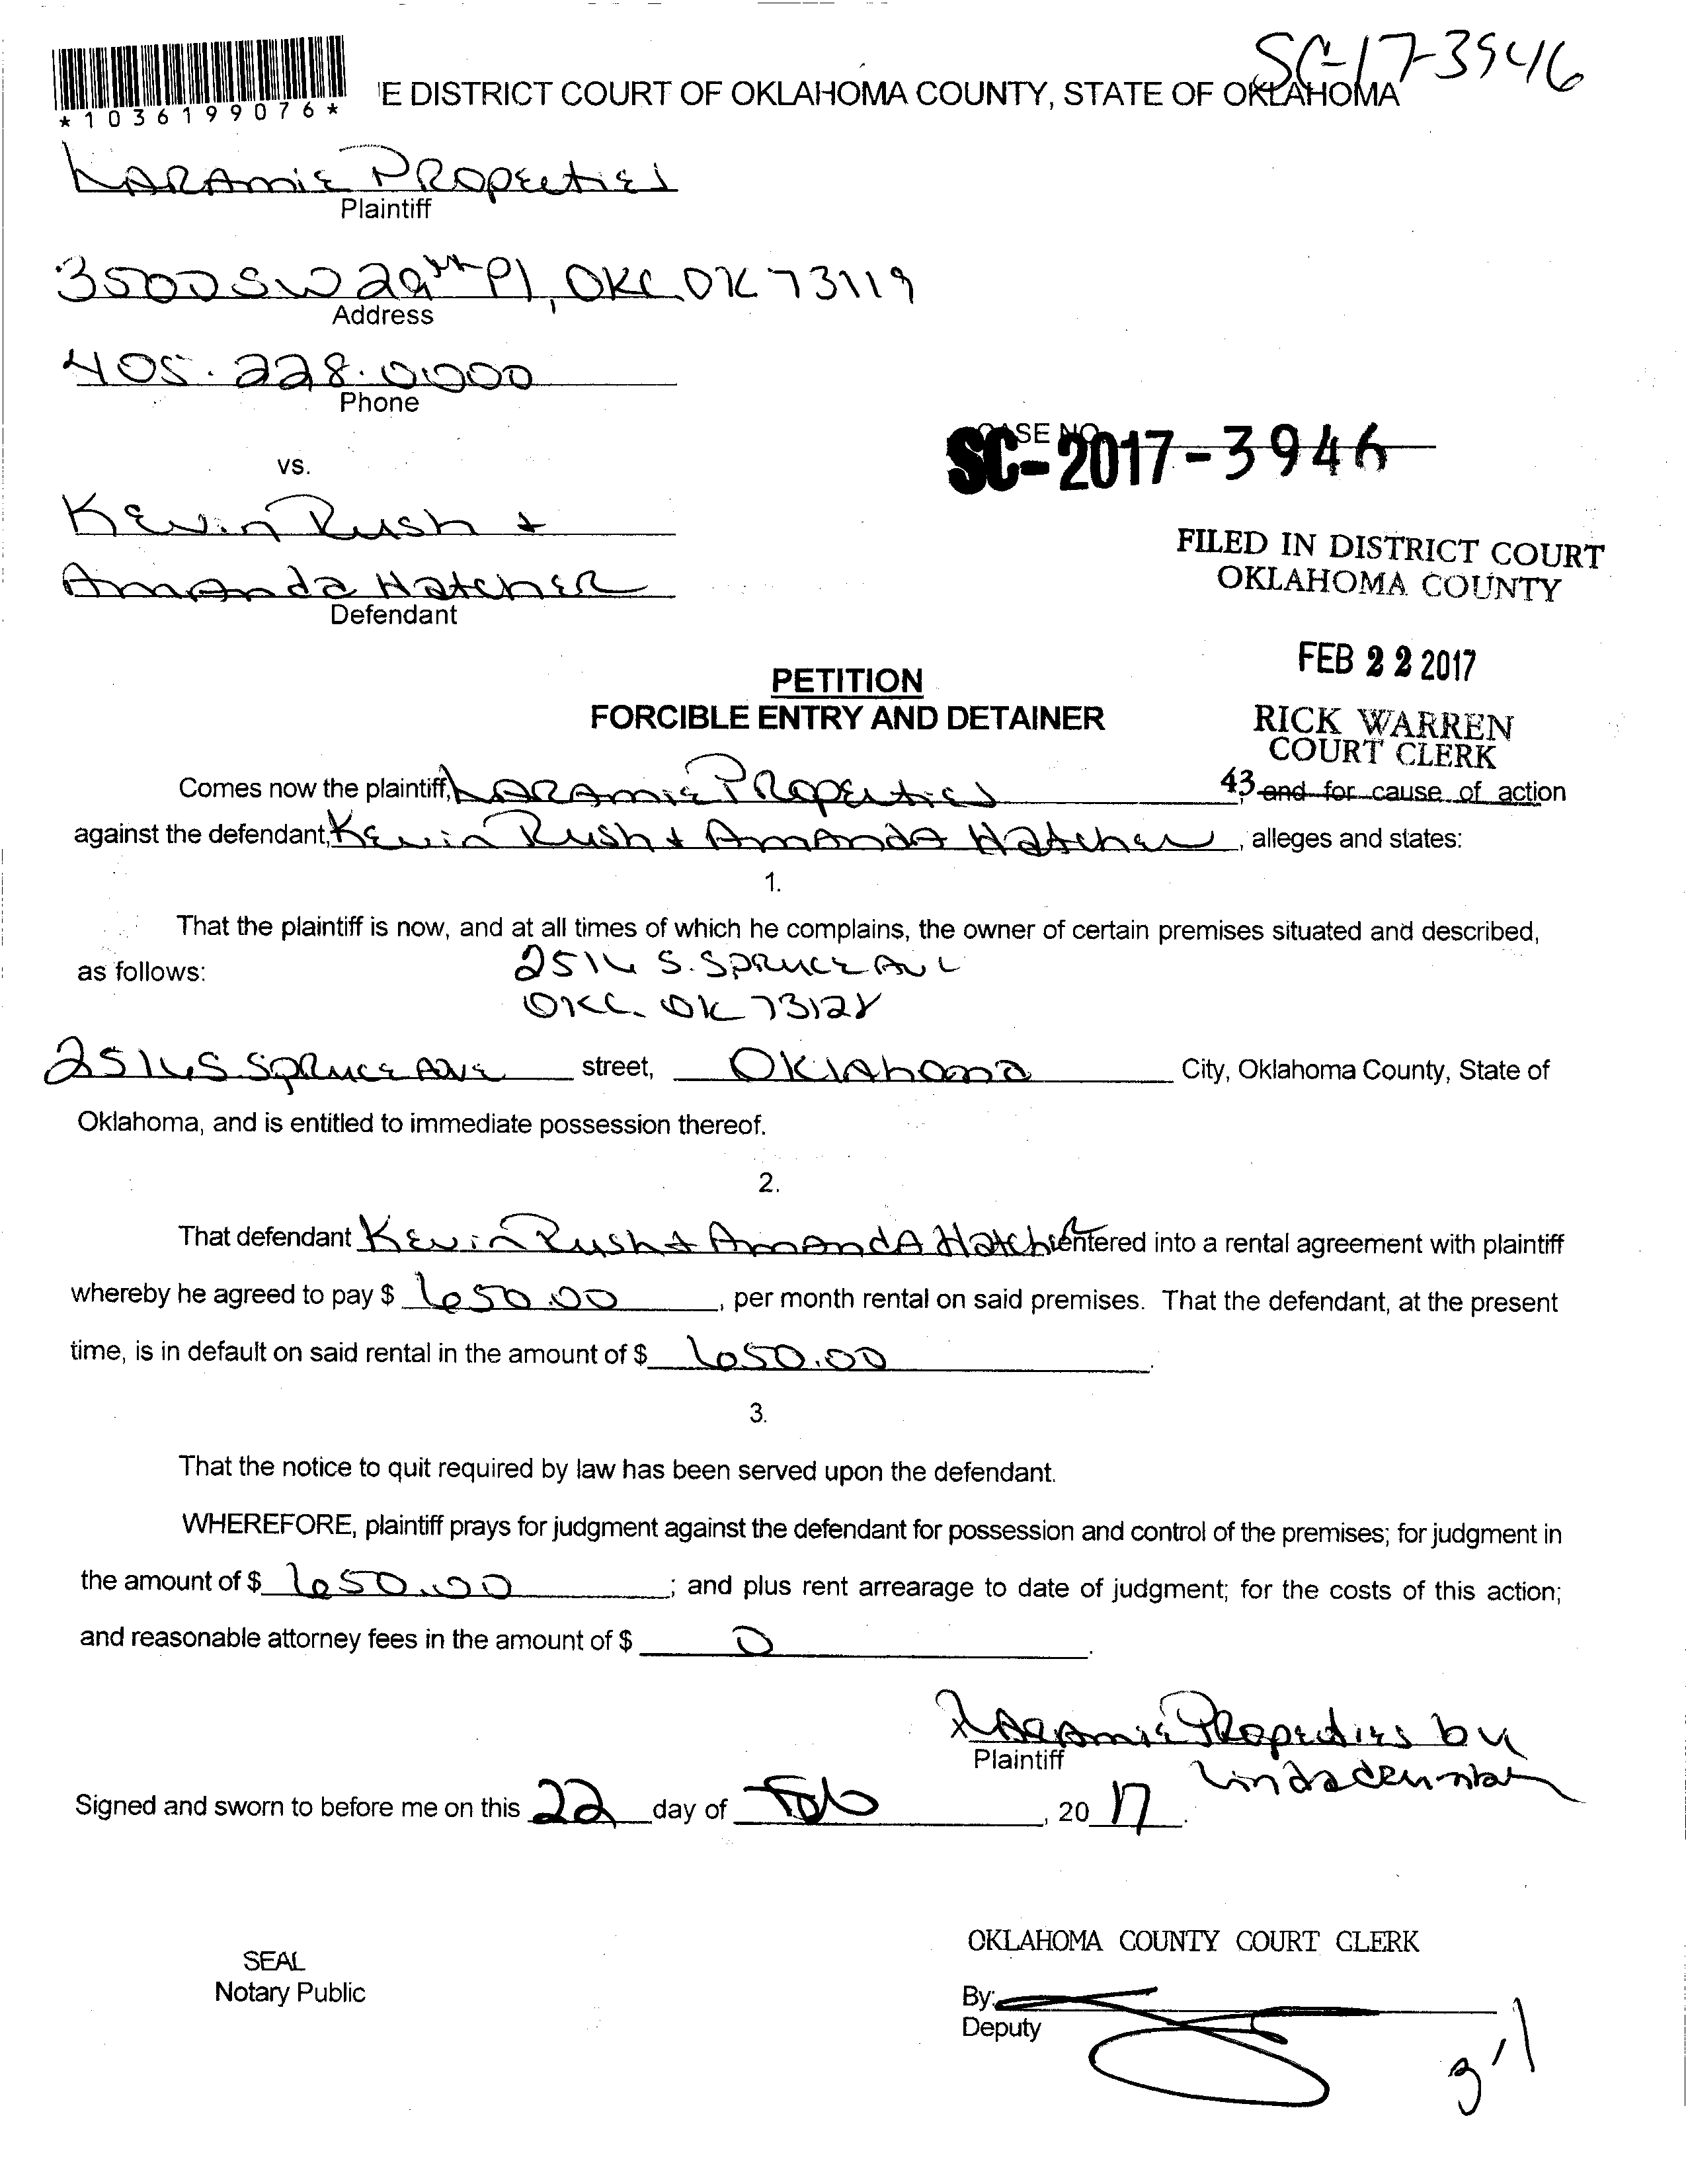 SC-17-3946
*1036199076*
'E DISTRICT COURT OF OKLAHOMA COUNTY, STATE OF OKLAHOMA
LARAmiE PROpErtiEs
Plaintiff
3500 SW 29th Pl, OKC OK 73119
Address
405.228.0000
Phone
CASE NO.
SC-2017-3946
vs.
Kevin Rush +
Amanda Hatcher
Defendant
FILED IN DISTRICT COURT
OKLAHOMA COUNTY
FEB 22 2017
PETITION
FORCIBLE ENTRY AND DETAINER
RICK WARREN
COURT CLERK
43
Comes now the plaintiff, LARAmiE PROpErtiEs and for cause of action
against the defendant, Kevin Rush + Amanda Hatcher, alleges and states:
1.
That the plaintiff is now, and at all times of which he complains, the owner of certain premises situated and described,
as follows: 2516 S. Spruce Ave
OKC. OK 73128
2516 S Spruce Ave street, Oklahoma City, Oklahoma County, State of
Oklahoma, and is entitled to immediate possession thereof.
2.
That defendant Kevin Rush + Amanda Hatcher entered into a rental agreement with plaintiff
whereby he agreed to pay $ 650.00, per month rental on said premises. That the defendant, at the present
time, is in default on said rental in the amount of $ 650.00.
3.
That the notice to quit required by law has been served upon the defendant.
WHEREFORE, plaintiff prays for judgment against the defendant for possession and control of the premises; for judgment in
the amount of $ 650.00; and plus rent arrearage to date of judgment; for the costs of this action;
and reasonable attorney fees in the amount of $ 0.
x LARAmiE PROpErtiEs by
Plaintiff
Linda
Signed and sworn to before me on this 22 day of Feb, 20 17.
OKLAHOMA COUNTY COURT CLERK
SEAL
Notary Public
By:
Deputy